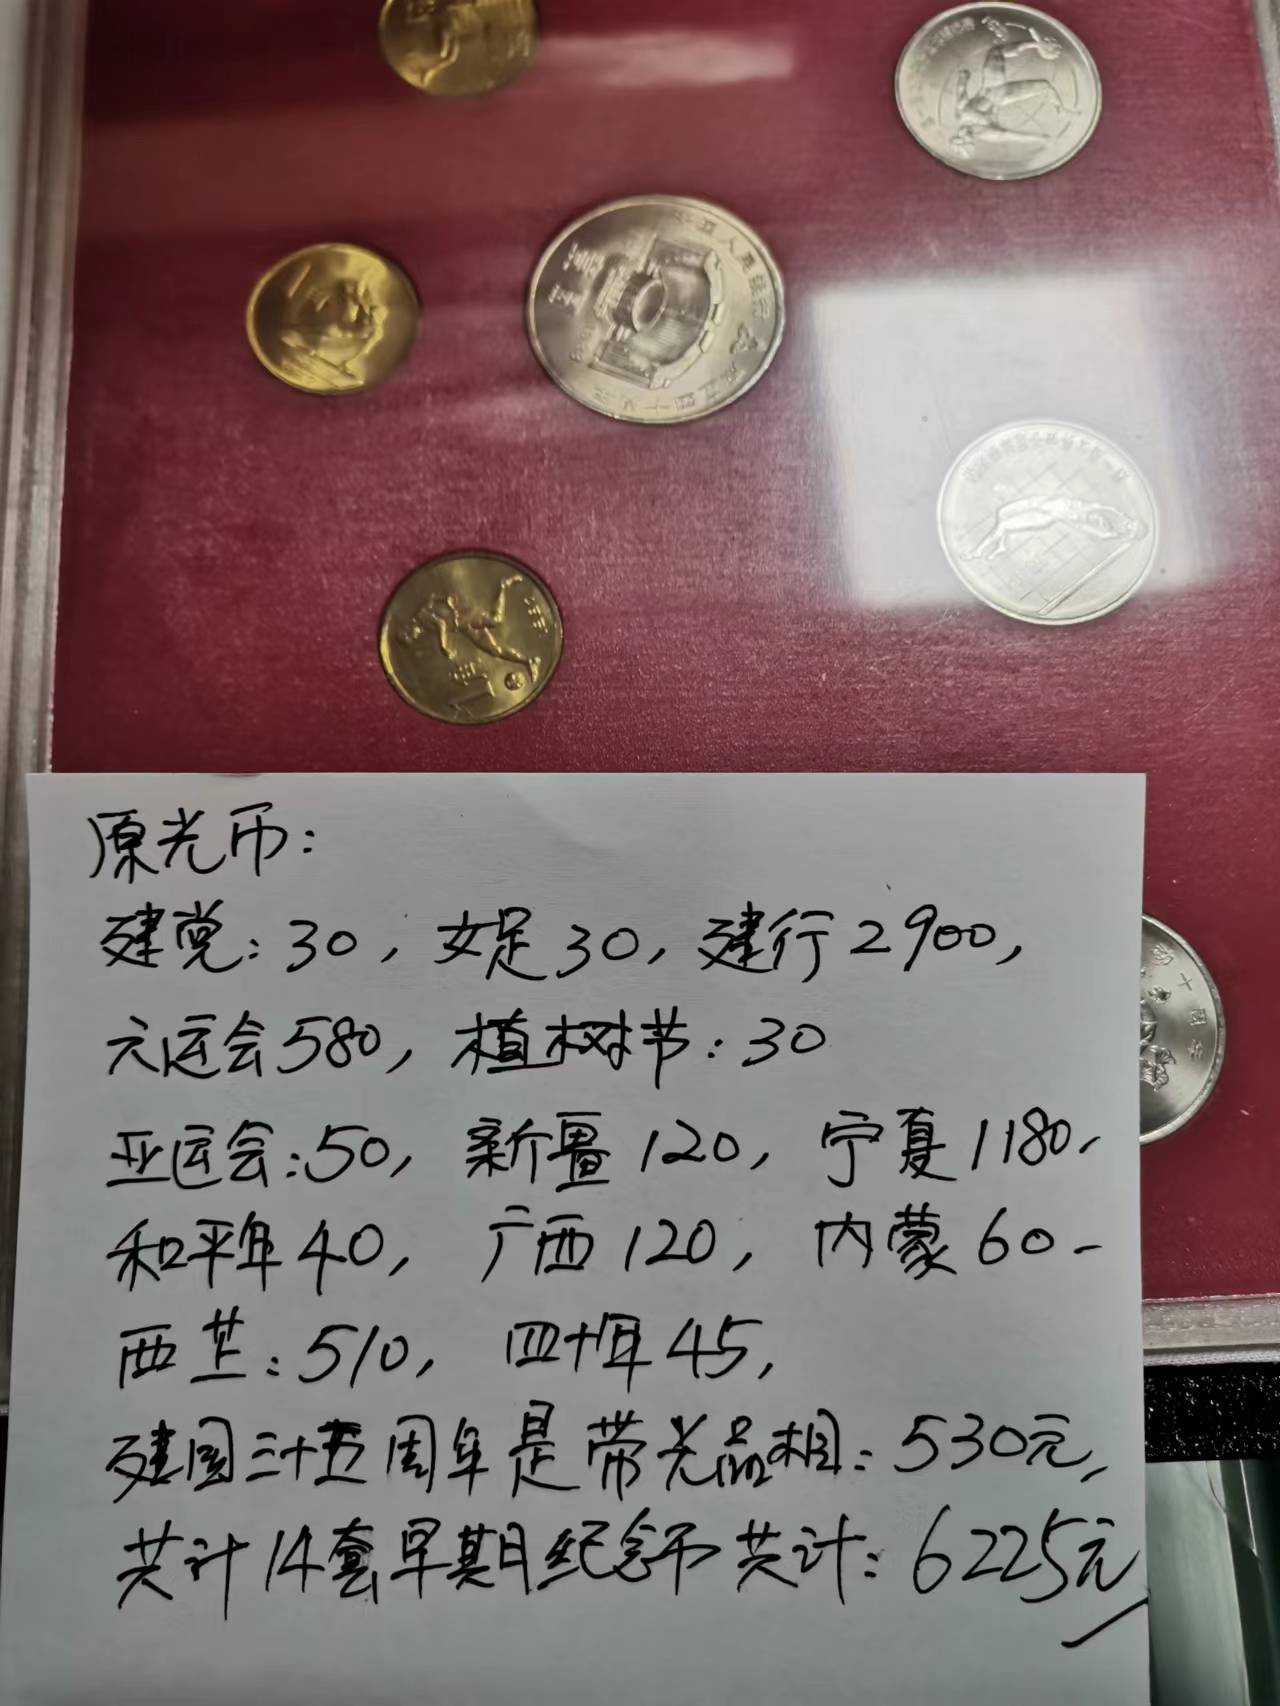 中国人民银行
成立四十周年
四十周年
原光币:
建党:30,女足30,建行2900,
六运会580,植树节:30
亚运会:50,新疆120,宁夏1180,
和平年40,广西120,内蒙60-
西芷:510,四十年45,
建国三十五周年是带光品相:530元,
共计14套早期纪念币共计:6225元